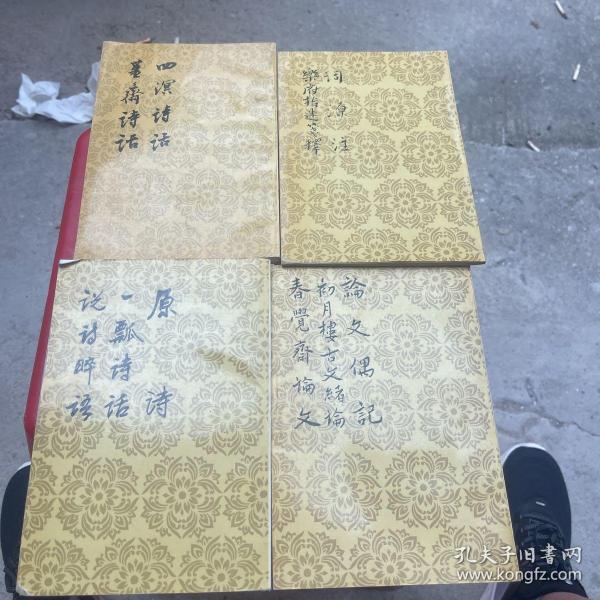 四溟诗话
薑斋诗话
词源注
樂府指迷笺釋
原诗
一瓢诗话
说诗晬语
論文偶記
初月樓古文緒論
春覺齋論文
孔夫子旧书网
www.kongfz.com